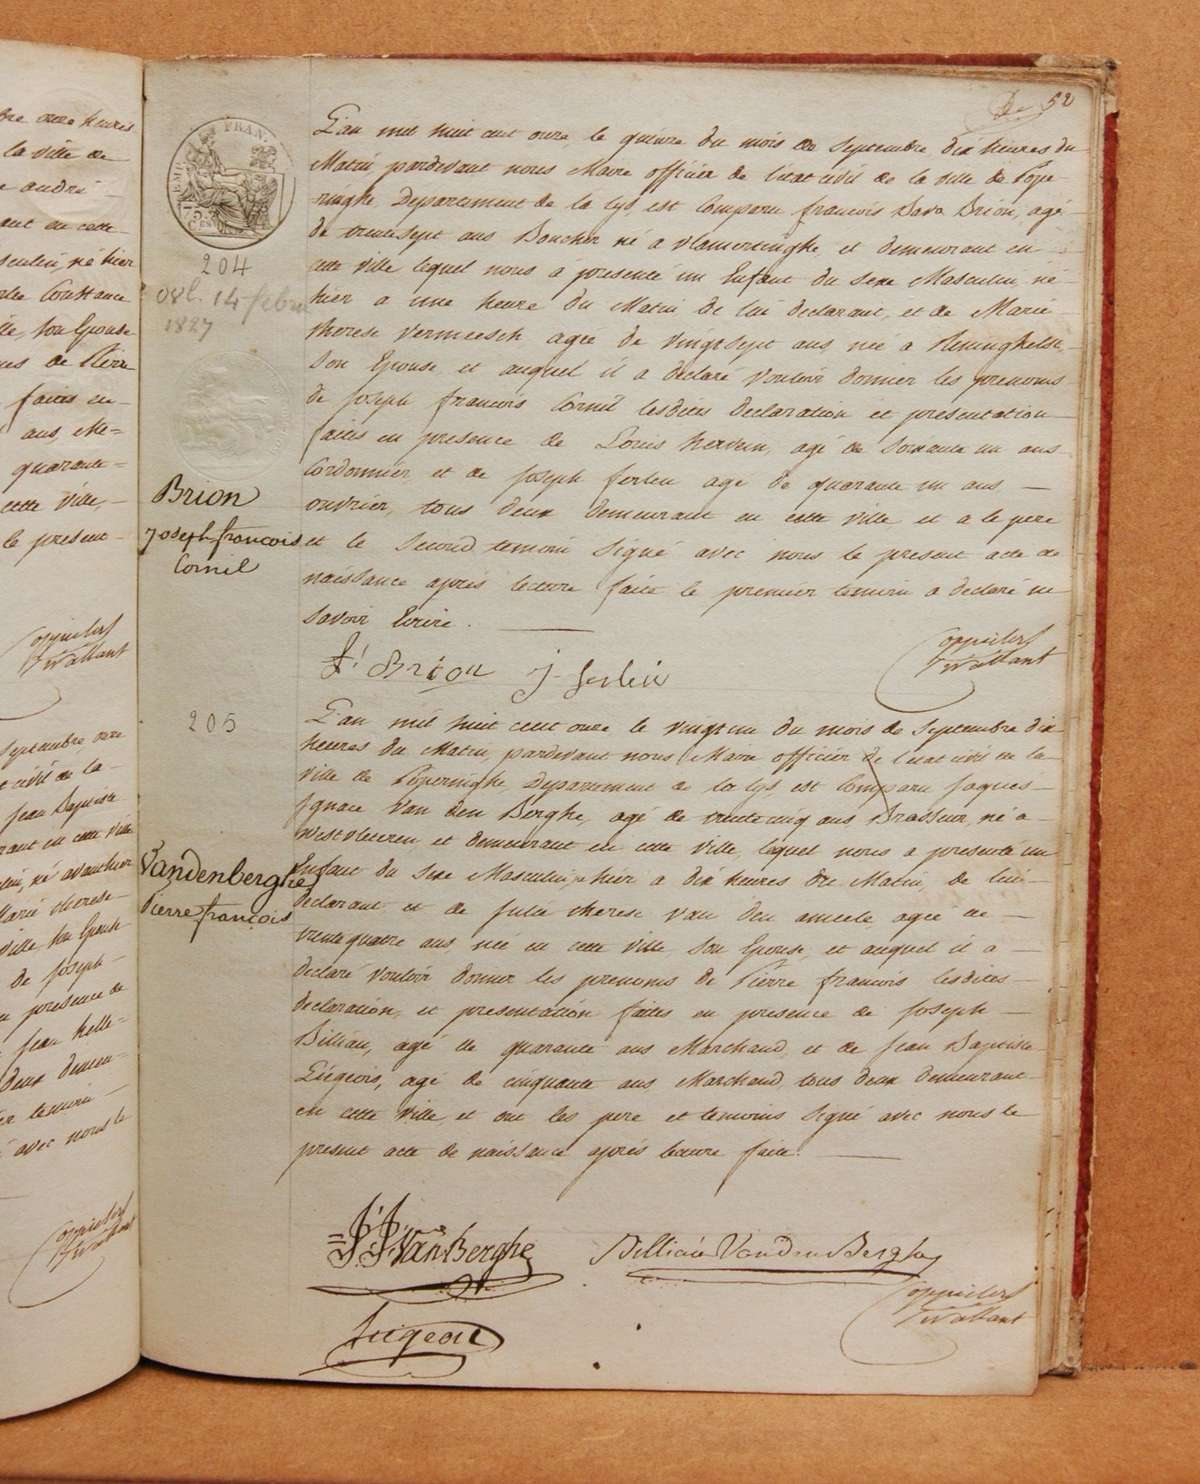 bre onze heures
la ville de
andré
ant en cette
sculin, né hier
Constance
lle, son Epouse
faites en
ans, Me=
quarante=
cette ville,
le present
septembre, onze
civil de la
jean Baptiste
rant en cette ville
né avanthier
Marie therese
ville, son Epouse
de joseph
presence de
jean helle=
deux demeu=
temoin
avec nous le
52
FRAN
204
14 febr
1827
L'an mil huit cent onze, le quinze du mois de Septembre dix heures du
Matin pardevant nous Maire officier de l'etat civil de la ville de Pope-
ringhe Departement de la lys, est Comparu francois Brion, agé
de trentesept ans Boucher né a vlamertinghe et demeurant en
cette ville lequel nous a presenté un Enfant du sexe Masculin, né
hier a une heure du Matin de lui declarant, et de Marie
therese Vermeesch agée de vingtsept ans née a Reninghelst
son Epouse, et auquel il a declaré vouloir donner les prenoms
de joseph francois Cornil lesdites declaration et presentation
faites en presence de Louis agé de soixante un ans
Cordonnier, et de joseph ferlein agé de quarante un ans
ouvrier, tous deux demeurant en cette ville et a le pere
et le second temoin signé avec nous le present acte de
naissance après lecture faite le premier temoin a declaré ne
savoir Ecrire.
Brion
joseph francois
Cornil
f. Brion j ferlein
205
L'an mil huit cent onze le vingt un du mois de Septembre dix
heures du Matin, pardevant nous Maire officier de l'etat civil de la
ville de Poperinghe, Departement de la lys est Comparu jaques
jgnace Van den Berghe, agé de trentecinq ans Brasseur, né a
westvleteren et demeurant en cette ville, lequel nous a presenté un
Enfant du sexe Masculin, hier a dix heures du Matin, de lui
declarant et de julie therese van den ameele agée de
trente quatre ans, née en cette ville, son Epouse, et auquel il a
declaré vouloir donner les prenoms de Pierre francois lesdites
declaration, et presentation faites en presence de joseph
Billiau, agé de quarante ans Marchand, et de jean Baptiste
Liégeois, agé de cinquante ans Marchand tous deux demeurant
en cette ville, et ont les pere et temoins signé avec nous le
present acte de naissance après lecture faite.
Vandenberghe
Pierre françois
J. J. VanBerghe Billiau VandenBerghe